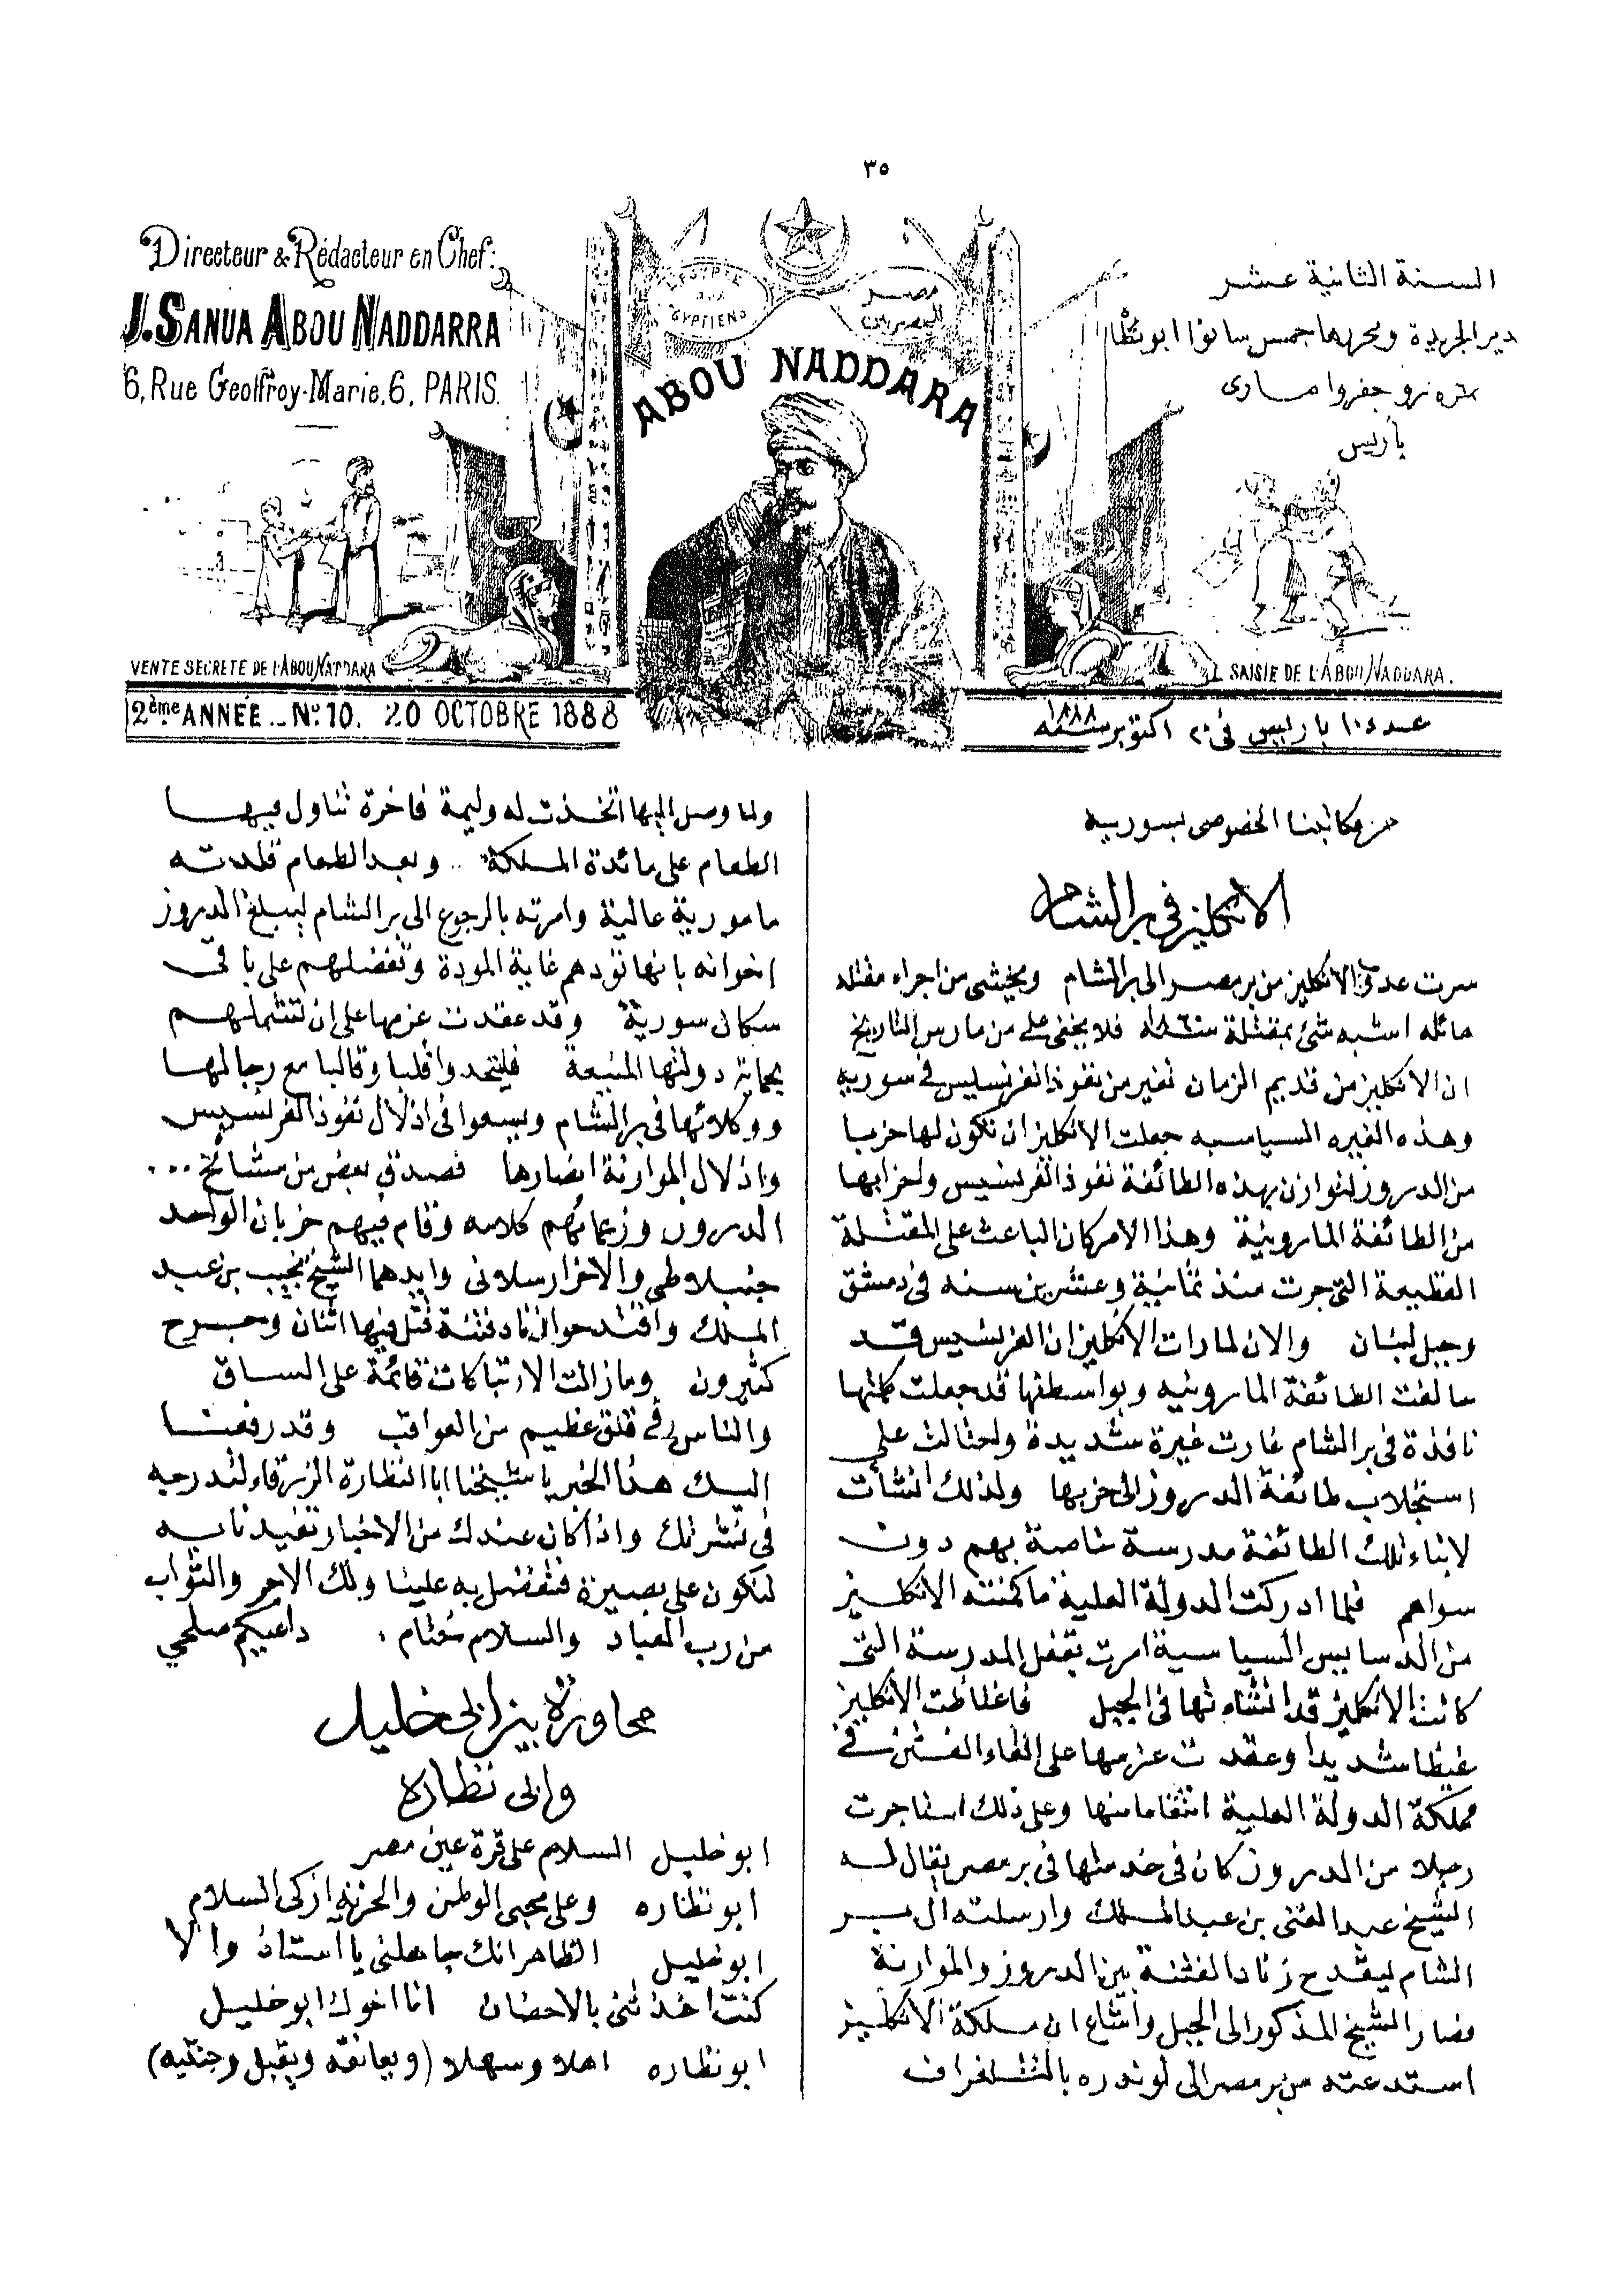 ٣٥
Directeur & Rédacteur en Chef:
J. SANUA ABOU NADDARRA
6, Rue Geoffroy-Marie, 6, PARIS.
L'EGYPTE
AUX
EGYPTIENS
مصر
للمصريين
ABOU NADDARA
السنة الثانية عشر
دير الجريدة ومحررها جمس سانوا ابو نظا
نمره ٦ رو جفروا مارى
باريس
VENTE SECRETE DE L'ABOU NADDARA
SAISIE DE L'ABOU NADDARA.
2ème ANNÉE _ No. 10. 20 OCTOBRE 1888
عدد ١٠ باريس في ٢٠ اكتوبر سنة ١٨٨٨
من مكاتبنا الخصوصى بسوريه
الانكليز فى بر الشام
سرت عدوى الانكليز من بر مصر الى بر الشام ويخشى من اجراء مقتله
هائله اشبه شئ بمقتلة سنة ١٨٦٠ فلا يخفى على من مارس التاريخ
ان الانكليز من قديم الزمان تغير من نفوذ الفرنسيس فى سوريه
وهذه الغيره السياسيه جعلت الانكليز ان تكون لها حزبا
من الدروز لتوازن بهذه الطائفة نفوذ الفرنسيس ولحزابها
من الطائفة المارونية وهذا الامر كان الباعث على المقتلة
العظيمة التى جرت منذ ثمانية وعشرين سنه فى دمشق
وجبل لبنان والان لما رات الانكليز ان الفرنسيس قد
حالفت الطائفة المارونيه وبواسطتها قد جعلت كلمتها
نافذة فى بر الشام غارت غيرة شديدة واحتالت على
استجلاب طائفة الدروز الى حزبها ولذلك انشأت
لابناء تلك الطائفة مدرسة خاصة بهم دون
سواهم فلما ادركت الدولة العلية ما كمنته الانكليز
من الدسايس السياسية امرت بقفل المدرسة التى
كانت الانكليز قد انشاءتها فى الجبل فاغتاظت الانكليز
غيظا شديدا وعقدت عزمها على القاء الفتن فى
مملكة الدولة العلية انتقاما منها وعلى ذلك استاجرت
رجلا من الدروز كان فى خدمتها فى بر مصر يقال له
الشيخ عبد الغنى بن عبد الملك وارسلته الى بر
الشام ليقدح زناد الفتنة بين الدروز والموارنة
فصار الشيخ المذكور الى الجبل واشاع ان ملكة الانكليز
استدعته من بر مصر الى لوندره بالتلغراف
ولما وصل اليها اتخذت له وليمة فاخرة تناول فيها
الطعام على مائدة الملكة .. وبعد الطعام قلدته
مامورية عالية وامرته بالرجوع الى بر الشام ليبلغ الدروز
اخوانه بانها تودهم غاية المودة وتفضلهم على باقى
سكان سورية وقد عقدت عزمها على ان تشملهم
بحماية دولتها المنيعة فليتحدوا قلبا وقالبا مع رجالها
ووكلائها فى بر الشام ويسعوا فى اذلال نفوذ الفرنسيس
واذلال الموارنة انصارها فصدق بعض من مشائخ ...
الدروز وزعمائهم كلامه وقام فيهم حزبان الواحد
جنبلاطى والاخر ارسلانى وايدهما الشيخ نجيب بن عبد
الملك واقتدحوا زناد فتنة قتل فيها اثنان وجرح
كثيرون ومازالت الارتباكات قائمة على الساق
والناس فى قلق عظيم من العواقب وقد رفعنا
اليك هذا الخبر يا شيخنا ابا النظارة الزرقاء لتدرجه
فى نشرتك واذا كان عندك من الاخبار تفيدنا به
لنكون على بصيرة فتفضل به علينا ولك الاجر والثواب
من رب العباد والسلام ختام . داعيكم صلحي
محاورة بين ابى خليل
وابى نظاره
ابو خليل السلام على قرة عين مصر
ابو نظاره وعلى محبى الوطن والحريه ازكى السلام
ابو خليل الظاهر انك جاهلنى يا استاذ والا
كنت اخذتنى بالاحضان انا اخوك ابو خليل
ابو نظاره اهلا وسهلا (ويعانقه ويقبل وجنتيه)